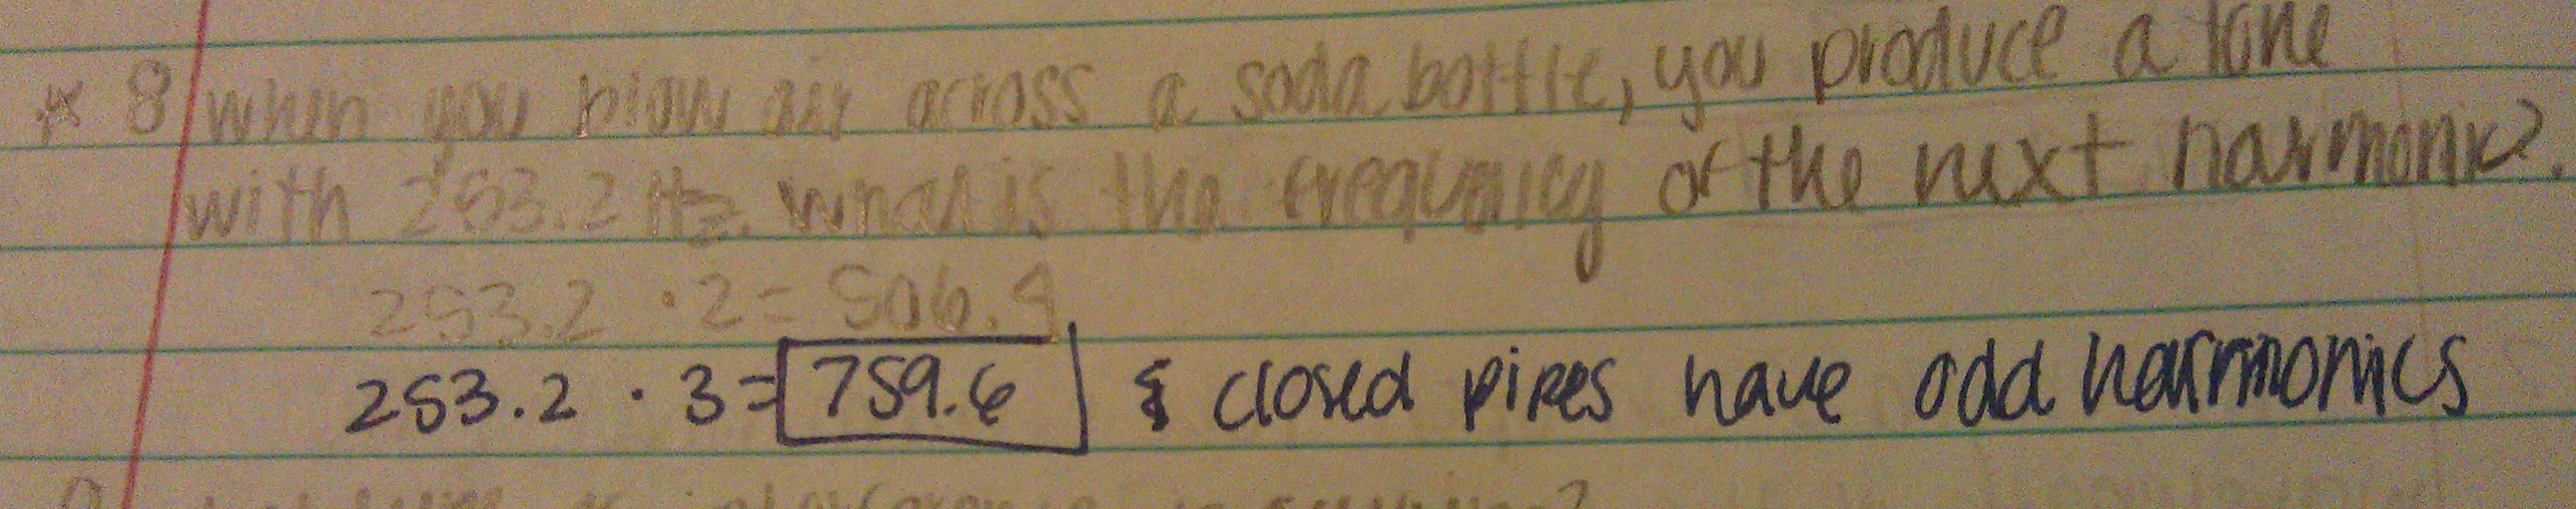 * 8 when you blow air across a soda bottle, you produce a tone
with 253.2 Hz. what is the frequency of the next harmonic?
253.2 · 2 = 506.4
253.2 · 3 = 759.6 & closed pipes have odd harmonics